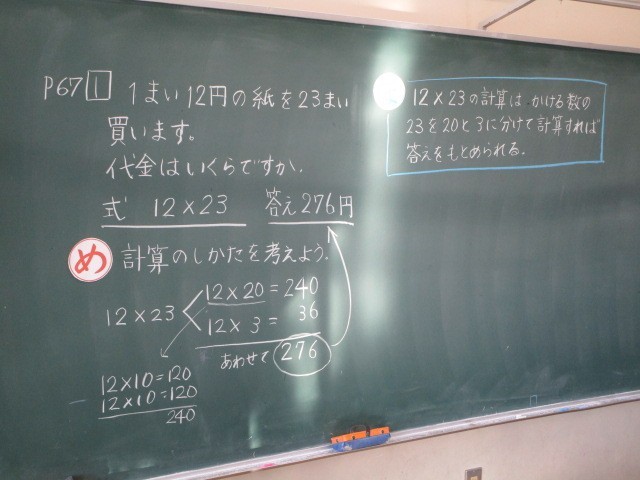 P67 1 1まい12円の紙を23まい
買います。
代金はいくらですか.
式 12×23 答え276円
め 計算のしかたを考えよう.
12×23
12×20=240
12×3=36
あわせて 276
12×10=120
12×10=120
240
12×23の計算は かける数の
23を20と3に分けて計算すれば
答えをもとめられる.